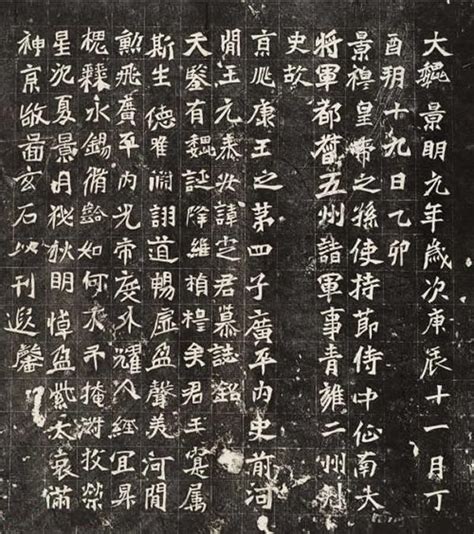 大魏景明元年歲次庚辰十一月丁
酉朔十九日乙卯
景穆皇帝之孫使持節侍中征南大
將軍都督五州諸軍事青雍二州刺
史故
京兆康王之第四子廣平內史前河
間王元泰安諱定君墓誌銘
天鑒有魏誕降維楨穆矣君王寔属
斯生德唯淵詡道暢虛盈聲美河間
勳飛廣平內光帝度外耀人經宜昇
槐永錫脩齡如何不掩摧榮
星沉夏景月狄秋明悼盈紫太哀滿
神京敬啚玄石以刊遐馨